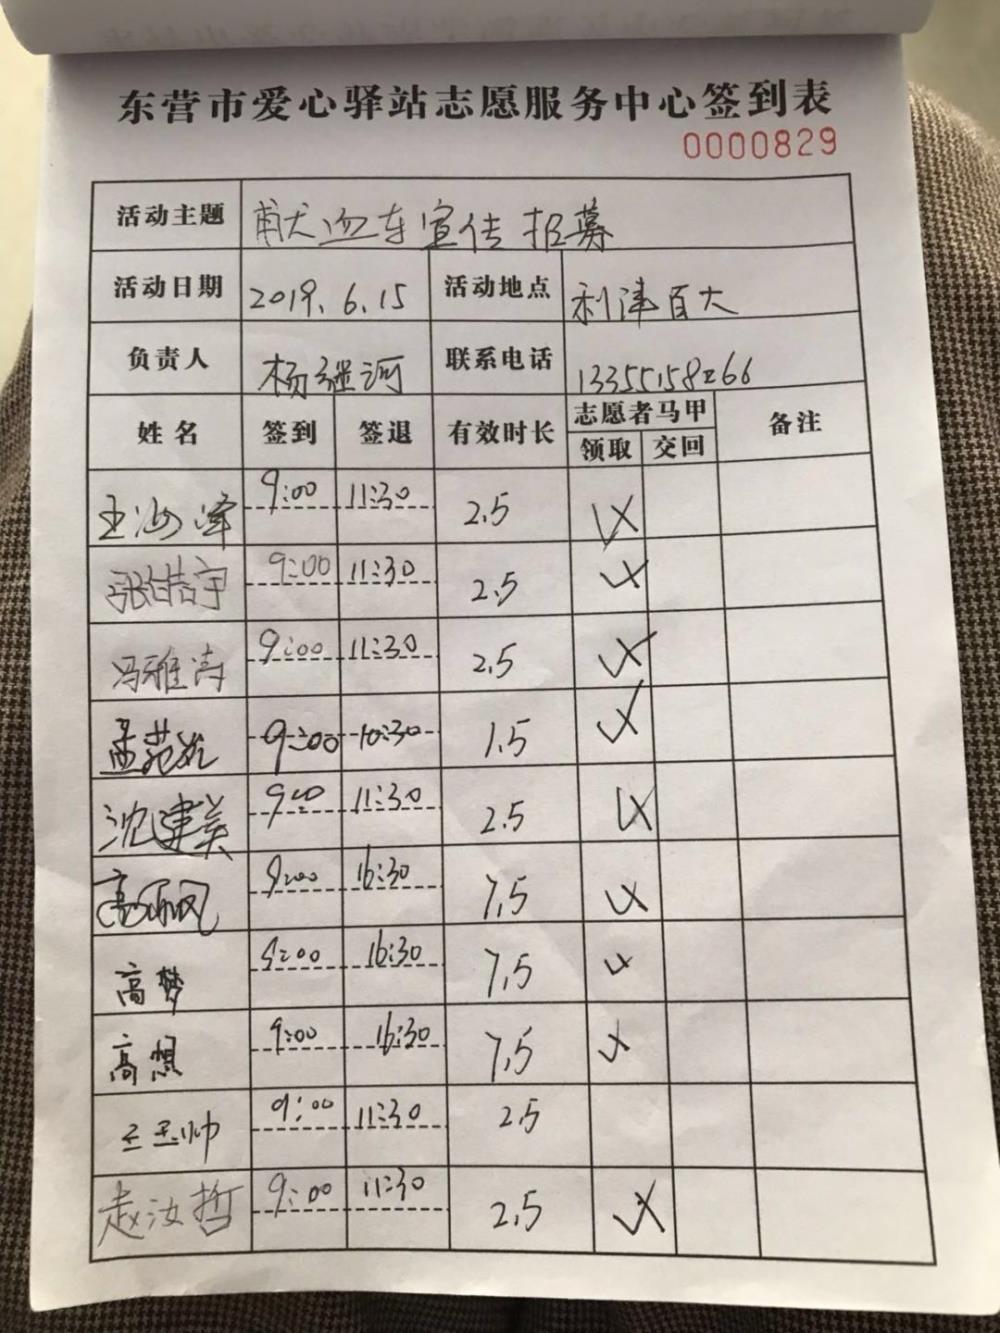 东营市爱心驿站志愿服务中心签到表
0000829
活动主题 献血车宣传招募
活动日期 2019.6.15 活动地点 利津百大
负责人 杨继河 联系电话 13355158266
姓名 签到 签退 有效时长 志愿者马甲 备注
领取 交回
王海峰 9:00 11:30 2.5
张皓宇 9:00 11:30 2.5
冯雅涛 9:00 11:30 2.5
9:00 10:30 1.5
沈建美 9:00 11:30 2.5
9:00 16:30 7.5
高梦 9:00 16:30 7.5
高想 9:00 16:30 7.5
9:00 11:30 2.5
赵汝哲 9:00 11:30 2.5